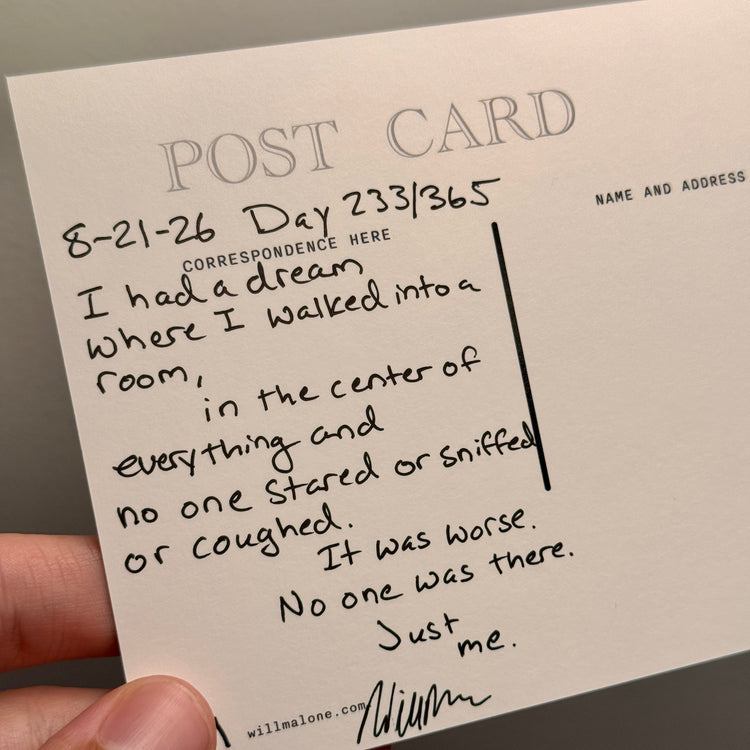 POST CARD
8-21-26 Day 233/365
CORRESPONDENCE HERE
NAME AND ADDRESS
I had a dream
where I walked into a
room,
in the center of
everything and
no one stared or sniffed
or coughed.
It was worse.
No one was there.
Just
me.
willmalone.com